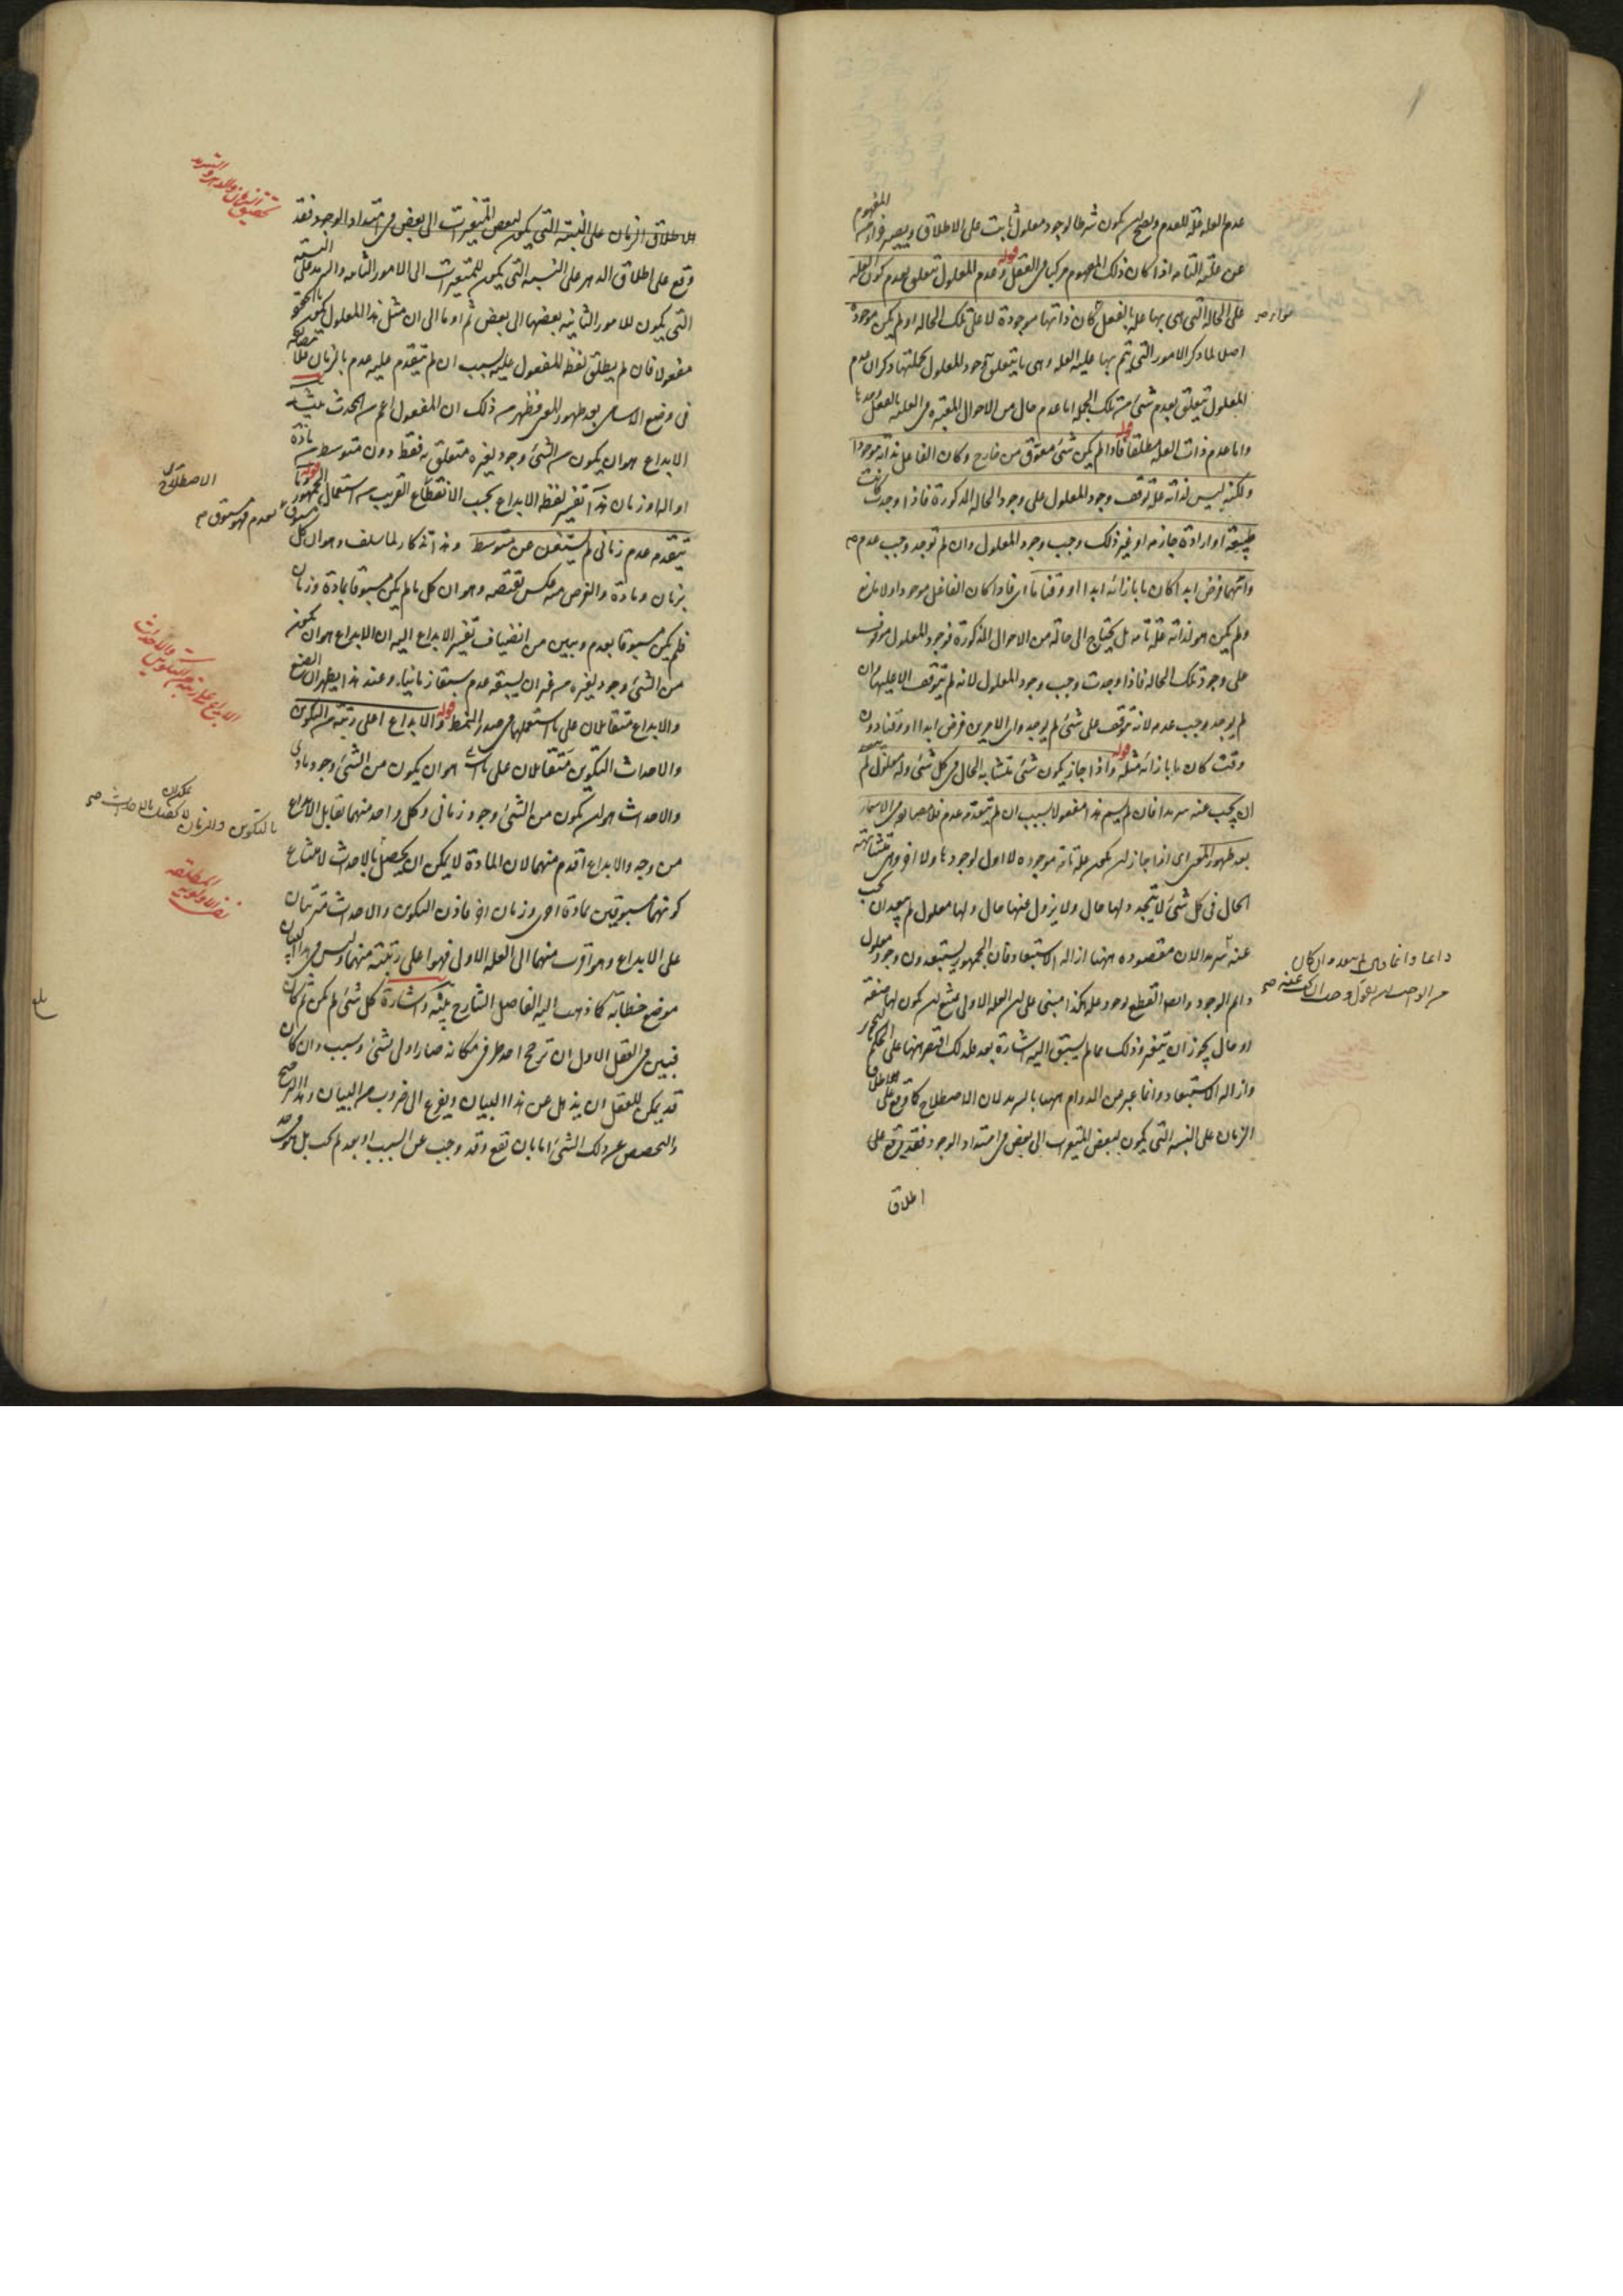 عدم العله علة للعدم ويصلح لان يكون شرطا لوجود معلول ثابت على الاطلاق ويصير جزءا من المفهوم
عن علته التامه اذا كان ذلك المفهوم مركبا فى العقل قوله وعدم المعلول يتعلق بعدم كون العله
على الحاله التى هى بها عله بالفعل كان ذاتها موجودة لا على تلك الحاله او لم يكن موجودة
اصلا لما ذكر الامور التى يتم بها عليه العله وهى ما يتعلق وجود المعلول بجملتها ذكر ان عدم
المعلول يتعلق بعدم شئ من تلك الجمله اما عدم حال من الاحوال المعتبره فى العليه بالفعل
واما عدم ذات العله مطلقا قوله فاذا لم يكن شئ معوق من خارج وكان الفاعل بذاته موجودا
ولكنه ليس لذاته عله توقف وجود المعلول على وجود الحاله المذكورة فاذا وجدت كانت
طبيعة او ارادة جازمه او غير ذلك وجب وجود المعلول وان لم توجد وجب عدمه
وايهما فرض ابدا كان ما بازائه ابدا او وقتا ما اى فاذا كان الفاعل موجودا ولا مانع
ولم يكن هو لذاته علة تامه بل يحتاج الى حاله من الاحوال المذكورة فوجود المعلول موقوف
على وجود تلك الحاله فاذا وجدت وجب وجود المعلول لانه لم يتوقف الا عليها وان
لم يوجد وجب عدمه لانه توقف على شئ لم يوجد واى الامرين فرض ابدا او وقتا دون
وقت كان ما بازائه مثله قوله واذا جاز ان يكون شئ متشابه الحال فى كل شئ وله معلول لم يبعد
ان يجب عنه سرمدا فان لم يسم هذا مفعولا بسبب ان لم يتقدمه عدم فلا مضايقه فى الاسماء
بعد ظهور المعنى اى اذا جاز ان يكون علة تامه موجوده لا اول لوجودها ولا اخر وهى متشابهة
الحال فى كل شئ لا يتجدد لها حال ولا يزول عنها حال ولها معلول لم يبعد ان يجب
عنه سرمدا لان مقصوده ههنا ازاله الاستبعاد فان الجمهور يستبعدون وجود معلول
دائم الوجود وايضا القطع بوجود علة هكذا مبنى على ان العله الاولى يمتنع ان يكون لها صفة
او حال يجوز ان يتغير وذلك مما لم يسبق اليه اشارة بعد فلذلك اقتصر ههنا على الحكم بالجواز
وازاله الاستبعاد وانما عبر عن الدوام ههنا بالسرمد لان الاصطلاح كما وقع على اطلاق
الزمان على النسبه التى يكون لبعض المتغيرات الى بعض فى امتداد الوجود فقد وقع على
اطلاق
الاطلاق الزمان على النسبة التى يكون لبعض المتغيرات الى بعض فى امتداد الوجود فقد
وقع على اطلاق الدهر على النسبه التى يكون للمتغيرات الى الامور الثابته والسرمد على النسبة
التى يكون للامور الثابته بعضها الى بعض ثم اومأ الى ان مثل هذا المعلول
مفعولا فان لم يطلق لفظ المفعول عليه بسبب ان لم يتقدم عليه عدم بالزمان فلا مضايقه
فى وضع الاسامى بعد ظهور المعنى فظهر من ذلك ان المفعول اعم من المحدث تنبيه
الابداع هو ان يكون من الشئ وجود لغيره متعلق به فقط دون متوسط من مادة
او اله او زمان هذا تفسير لفظ الابداع بحسب استعمال الجمهور قوله وما
يتقدمه عدم زمانى لم يستغن عن متوسط وهذا تذكار لما سلف وهو ان كل مسبوق بعدم فهو مسبوق
بزمان ومادة والغرض منه عكس نقيضه وهو ان كل ما لم يكن مسبوقا بمادة وزمان
فلم يكن مسبوقا بعدم ويبين من انضياف تفسير الابداع اليه ان الابداع هو ان يكون
من الشئ وجود لغيره من غير ان يسبقه عدم سبقا زمانيا وعند هذا يظهر ان الصنع
والابداع متقابلان على ما استعملهما فى صدر النمط قوله والابداع اعلى رتبة من التكوين
والاحداث التكوين متقابلان على هو ان يكون من الشئ وجود مادى
والاحداث هو ان يكون من الشئ وجود زمانى وكل واحد منهما يقابل الابداع
من وجه والابداع اقدم منهما لان المادة لا يمكن ان يحصل بالاحداث لامتناع
كونهما مسبوقين بمادة اخرى وزمان اخر فاذن التكوين والاحداث مترتبان
على الابداع وهو اقرب منهما الى العله الاولى فهو اعلى رتبة منهما وليس فى هذا البيان
موضع خطابة كما ذهب اليه الفاضل الشارح تنبيه واشارة كل شئ لم يكن ثم كان
فبين فى العقل الاول ان ترجح احد طرفى امكانه صار اولى بشئ وسبب وان كان
قد يمكن للعقل ان يذهل عن هذا البيان ويفزع الى ضروب من البيان وهذا الترجيح
والتخصيص عن ذلك الشئ اما بان يقع وقد وجب عن السبب او بعد لم يجب بل هو فى حد
تحقيق الزمان والدهر والسرمد
الاصطلاحى
الابداع على رتبة من التكوين والاحداث
بالتكوين والزمان لا يمكن ان يحصل بالاحداث صح